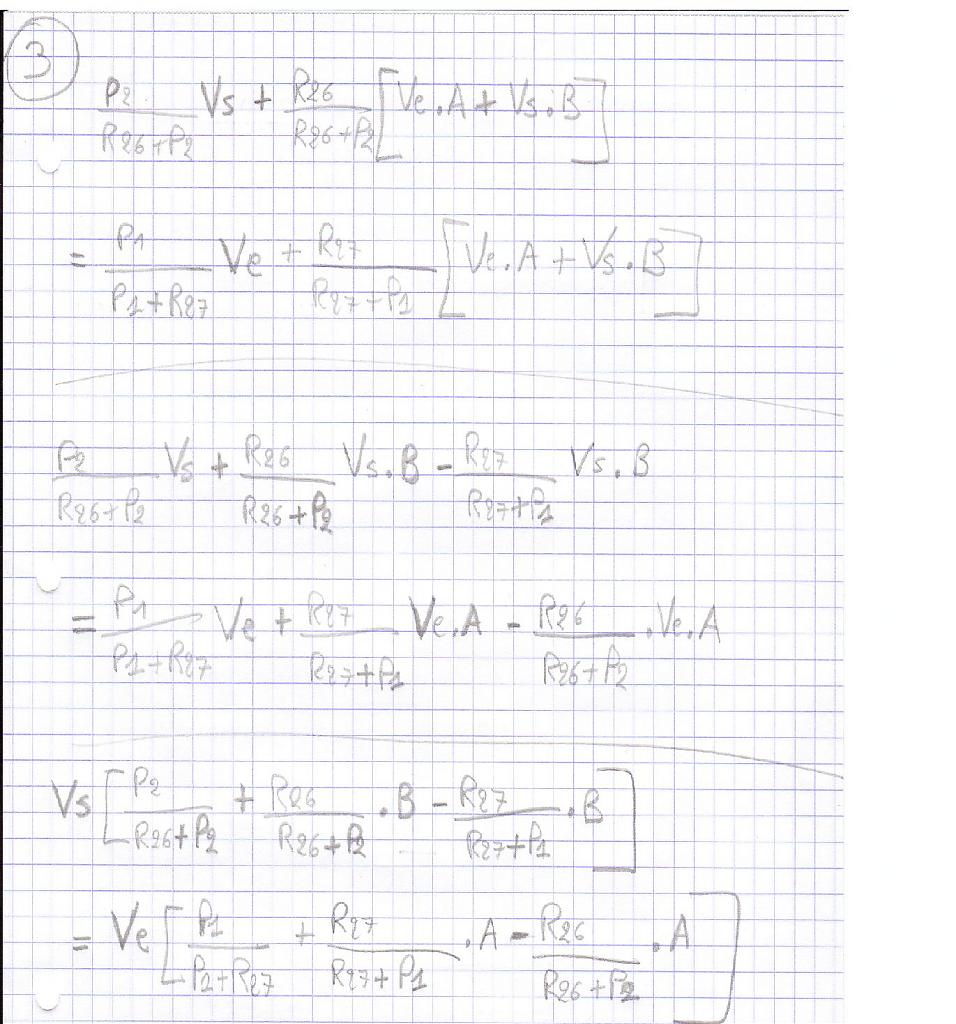 3
P2/(R26+P2) Vs + R26/(R26+P2) [Ve.A + Vs.B]
= P1/(P1+R27) Ve + R27/(R27+P1) [Ve.A + Vs.B]
P2/(R26+P2) Vs + R26/(R26+P2) Vs.B - R27/(R27+P1) Vs.B
= P1/(P1+R27) Ve + R27/(R27+P1) Ve.A - R26/(R26+P2) .Ve.A
Vs [P2/(R26+P2) + R26/(R26+P2) .B - R27/(R27+P1) .B]
= Ve [P1/(P1+R27) + R27/(R27+P1) .A - R26/(R26+P2) .A]